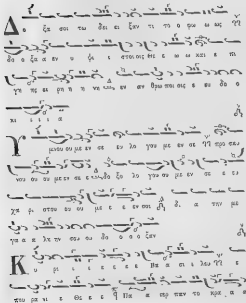 Δ ο ξα σοι τω δει ει ξαν τι το ο φω ω ως
δο ο ξα α εν υ ψι ι στοις Θε ε ω και ε πι
γη ης ει ρη η η νη εν αν θρω ποις ευ δο ο
κι ι ι α
Υ μνου ου με εν σε ευ λο γου με εν σε ε προ σκυ
νου ου ου με εν σε δο ξο λο γου ου με εν σε ευ
χα ρι στου ου ου με ε ε εν σοι δι α την με
γα α α λην σου ου δο ο ο ο ξαν
Κ υ ρι ι ε ε ε ε Βα α σι λευ ε
που ρα νι ε Θε ε ε Πα α τερ παν το κρα α α